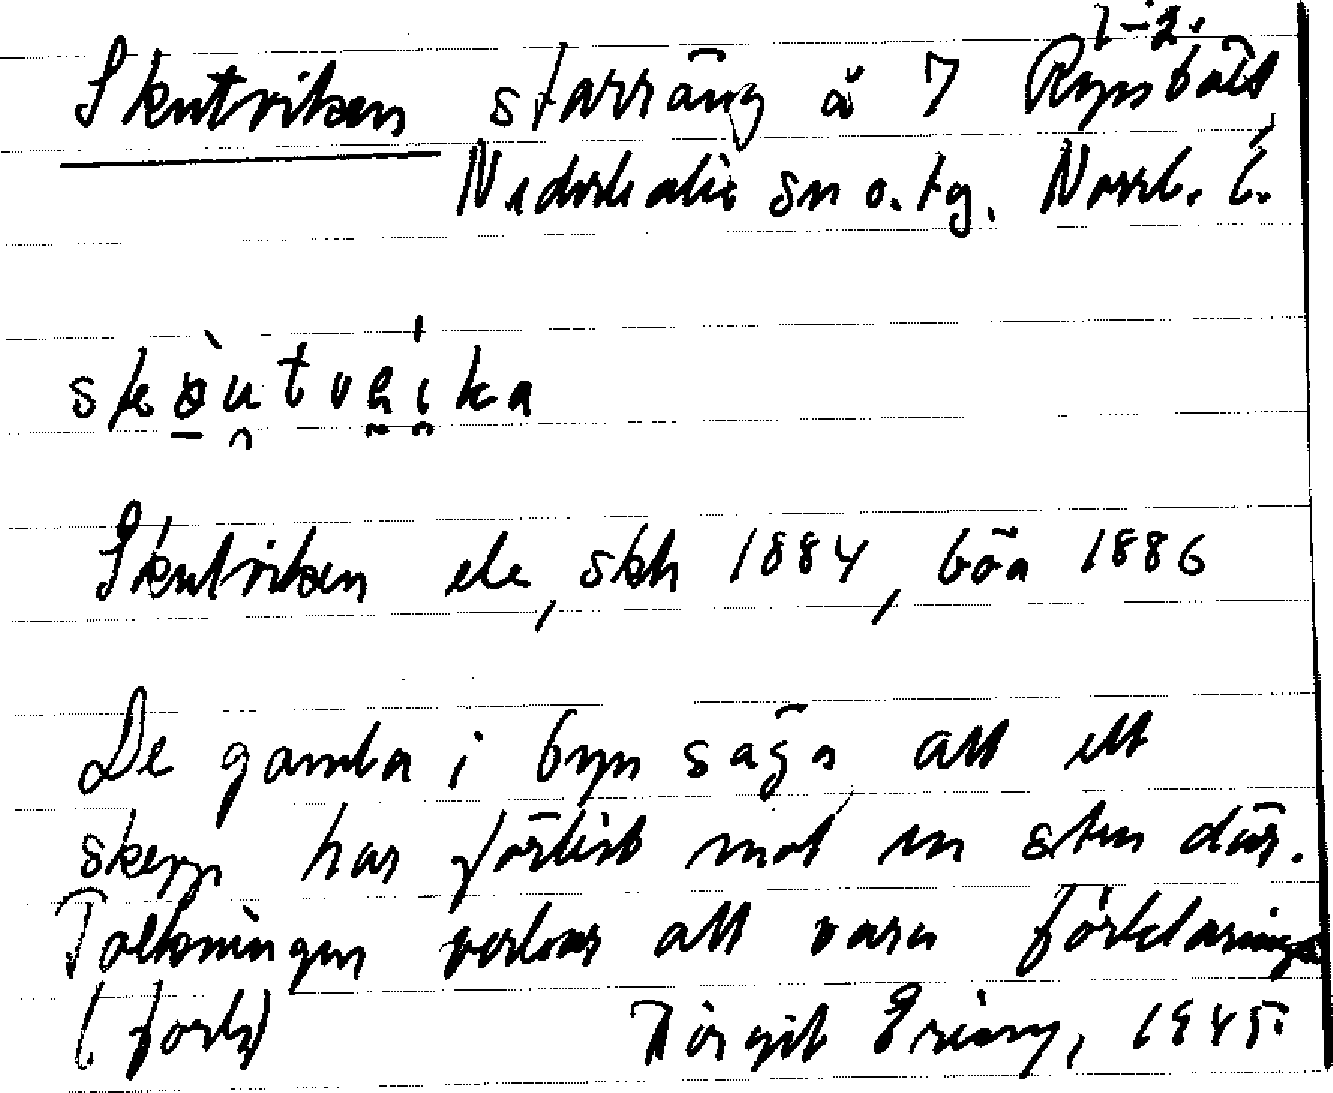 1-2.
Skutviken starräng å 7 Rynbält
Nederkalix sn o. tg. Norrb. l.
skòutvi̯ka
Skutviken ele, skh 1884, böa 1886
De gamla i byn säga att ett
skepp har förlist mot en sten där.
Tolkningen verkar att vara förklarings
(forts) Birgit Eriang, 1945.